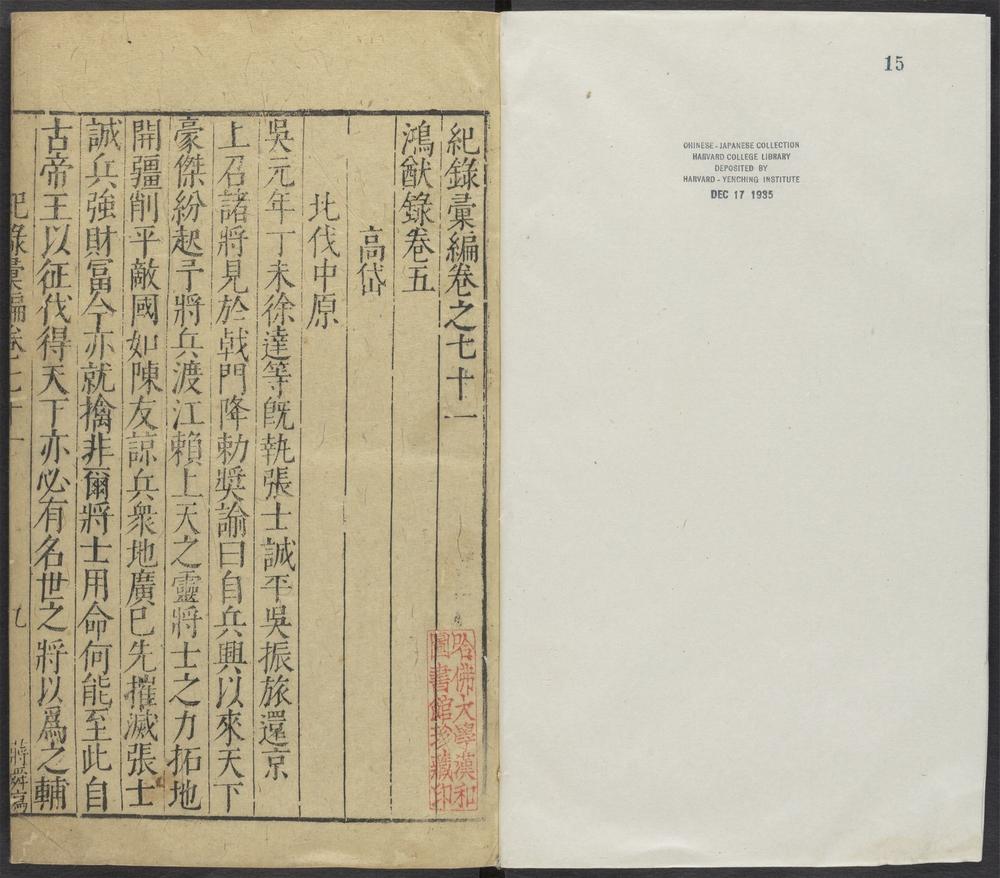 15
CHINESE-JAPANESE COLLECTION
HARVARD COLLEGE LIBRARY
DEPOSITED BY
HARVARD-YENCHING INSTITUTE
DEC 17 1935
紀錄彙編卷之七十一
鴻猷錄卷五
高岱
北伐中原
吳元年丁未徐達等旣執張士誠平吳振旅還京
上召諸將見於戟門降勅奬諭曰自兵興以來天下
豪傑紛起予將兵渡江賴上天之靈將士之力拓地
開疆削平敵國如陳友諒兵衆地廣已先摧滅張士
誠兵強財富今亦就擒非爾將士用命何能至此自
古帝王以征伐得天下亦必有名世之將以爲之輔
紀錄彙編卷七十一
九
哈佛大學漢和
圖書館珍藏印